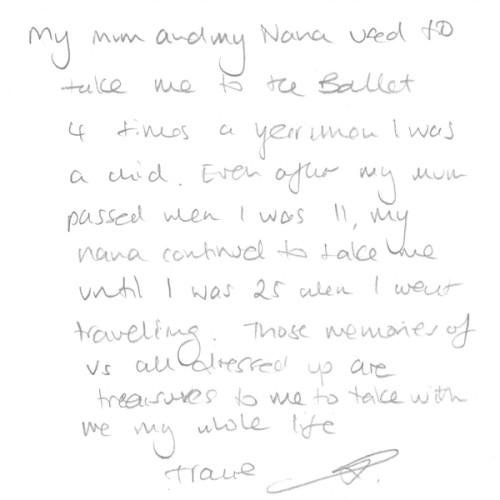 My mum and my Nana used to
take me to the Ballet
4 times a year when I was
a child. Even after my mum
passed when I was 11, my
nana continued to take me
until I was 25 when I went
travelling. Those memories of
us all dressed up are
treasures to me to take with
me my whole life